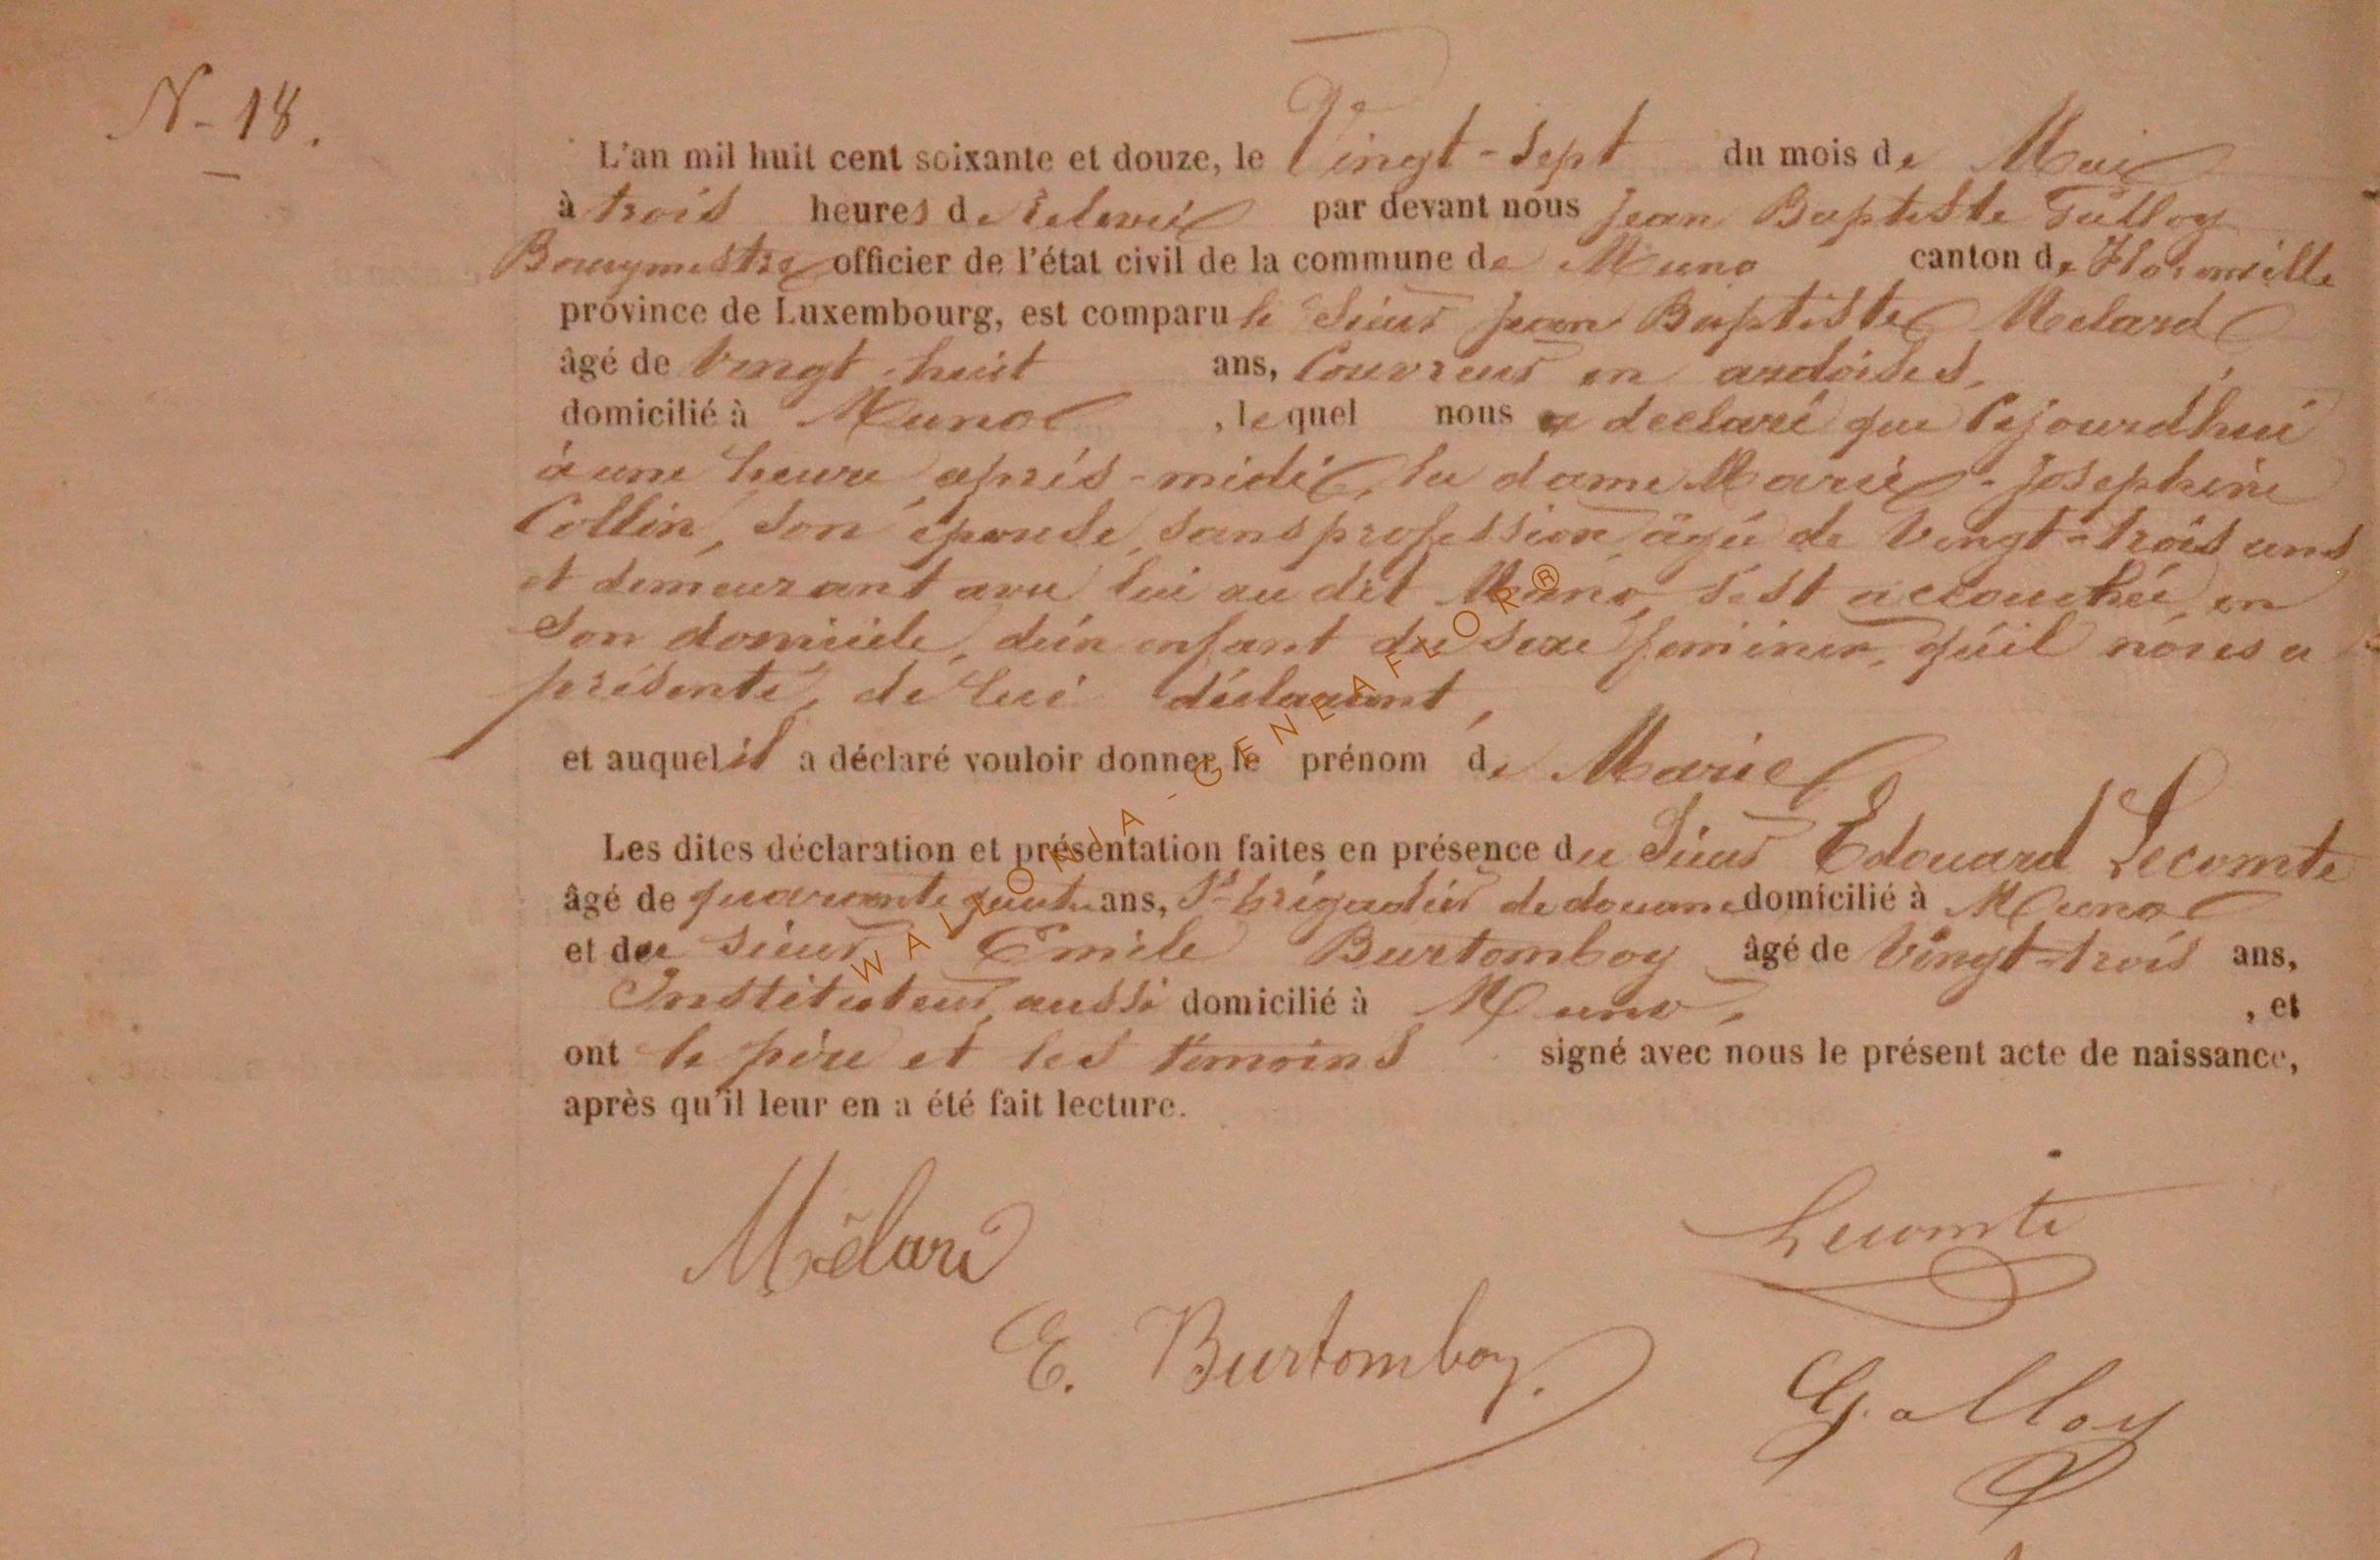 N- 18.
L'an mil huit cent soixante et douze, le Vingt-Sept du mois de Mai
à trois heures de relevée par devant nous Jean Baptiste Galloy
Bourgmestre officier de l'état civil de la commune de Muno canton de Florenville
province de Luxembourg, est comparu le Sieur Jean Baptiste Melard
âgé de Vingt-huit ans, Couvreur en ardoises,
domicilié à Muno, lequel nous a declaré que Cejourdhui
à une heure après-midi, la dame Marie-Josephine
Collin, Son épouse, sans profession, âgée de Vingt-trois ans
et demeurant avec lui au dit Muno, s'est accouchée, en
Son domicile, d'un enfant du Sexe feminin, qu'il nous a
présenté, de lui déclarant,
et auquel il a déclaré vouloir donner le prénom de Marie
Les dites déclaration et présentation faites en présence du Sieur Edouard Lecomte
âgé de quarante quatre ans, Ss brigadier de douane domicilié à Muno
et du sieur Emile Burtomboy âgé de Vingt-trois ans,
Instituteur, aussi domicilié à Muno, , et
ont le père et les témoins signé avec nous le présent acte de naissance,
après qu'il leur en a été fait lecture.
Mélard
Lecomte
E. Burtomboy.
Galloy
WALLONIA-GENEAFLOR®